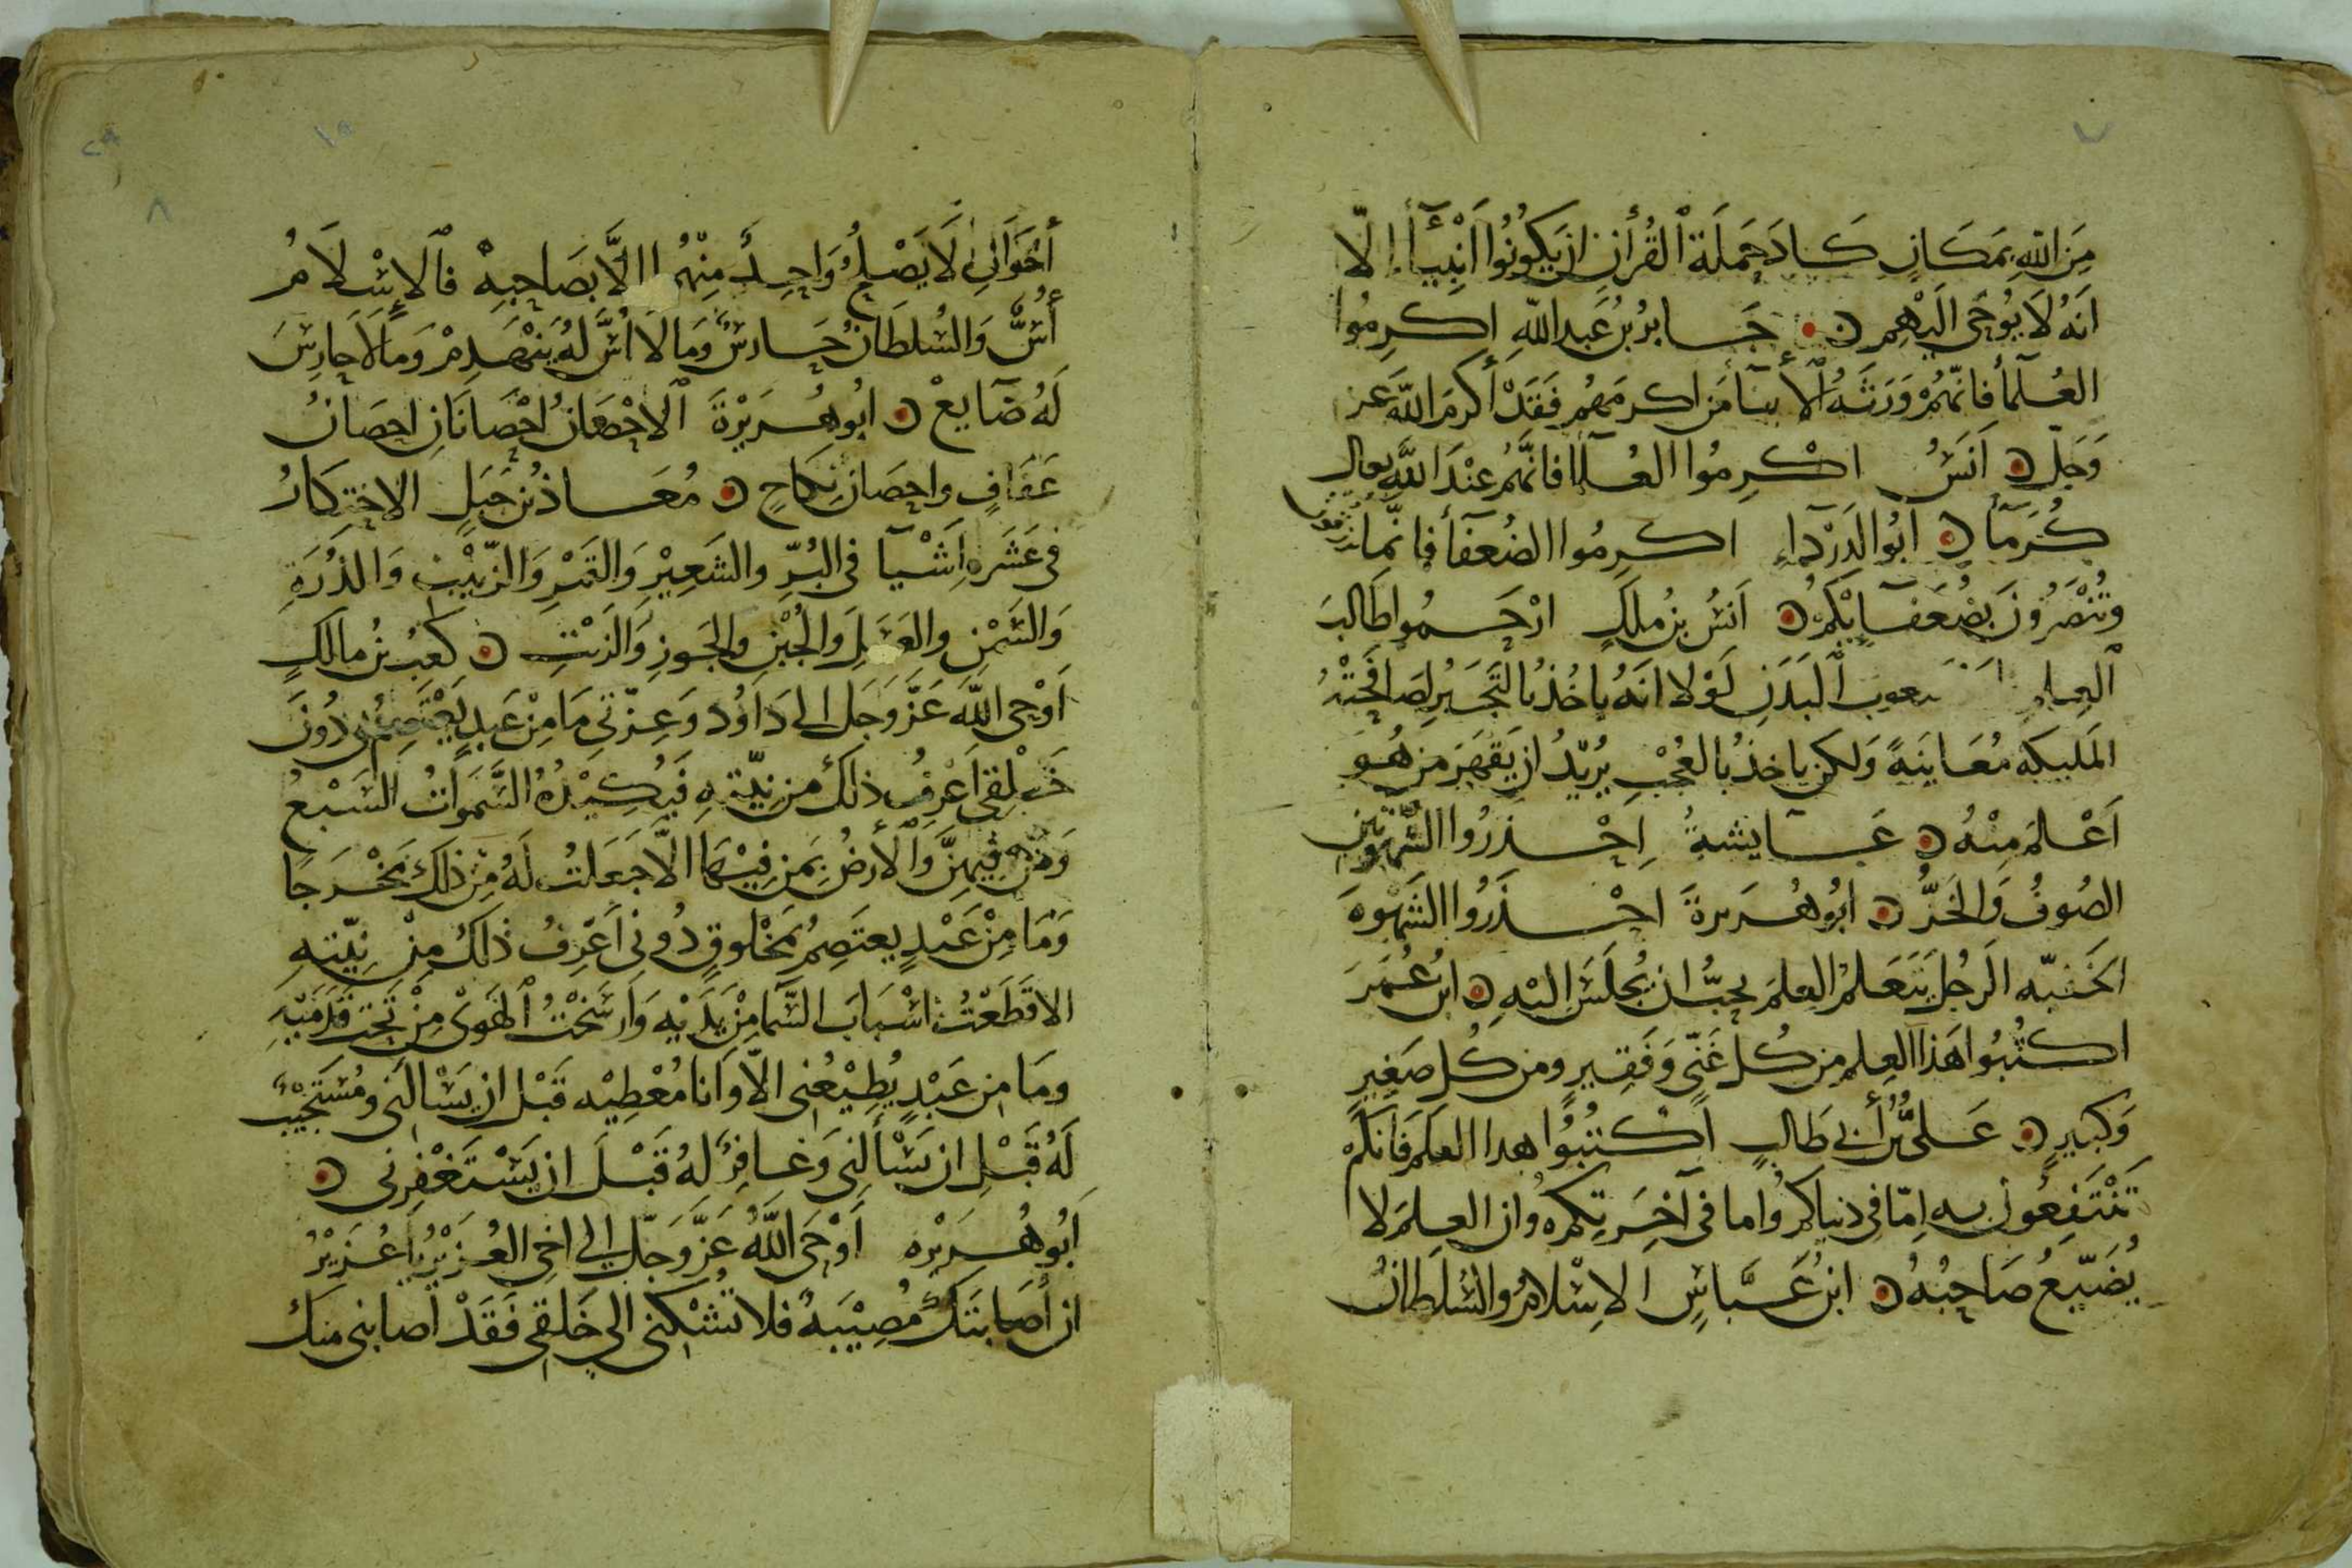 مِنَ اللهِ بِمَكَانٍ كَادَ حَمَلَة ٱلْقُرْأٰنِ ان يَكُونُوا اَنْبِيَآءَ إلّا
اَنهُ لَا يُوحَى الَيْهِم ۞ جَابرُ بْنُ عَبد اللهِ اكرِمُوا
العُلَمآ فانّهُمْ وَرَثَة ٱلأنبيآ مَن اكرمَهُم فَقَدْ أَكرَمَ اللهَ عَز
وَجَلّ ۞ اَنَسٌ اكْرِمُوا العُلمآ فانَّهُم عِنْدَ اللهِ تعالى
كُرَمَآ ۞ اَبُو الدَرْدَآءِ اكرِمُوا الضُعَفآ فانّما ترزقون
وتُنْصَرُونَ بِضُعَفَآئِكُم ۞ اَنسُ بنُ ملكٍ ارْحَمُوا طَالبَ
ٱلعِلمِ متعوب ٱلبَدَنِ لَوْلا انَهُ ياخُذُ بالتَجَبُرِ لصَافَحَتْهُ
المَليكه مُعَاينَةً وَلكن ياخذُ بالعُجْبِ يُرِيْدُ ان يَقهَرَ من هُوَ
اَعْلَمَ مِنْهُ ۞ عَآيشةُ اِحْذرُوا الشُهْرَتَيْنِ
الصُوفُ وَالخَزُّ ۞ ابُو هُرَيرةَ احْذَرُوا الشَهْوةَ
الخَفيّه الرَجُل يَتَعَلمُ العِلمَ يحِبُّ ان يُجْلَسَ اليْهِ ۞ ابنُ عُمَرَ
اكتُبُوا هَذا العِلم مِن كُل غَنيّ وَفَقِيرٍ ومن كُل صَغيرٍ
وَكبيرٍ ۞ عَليُّ بْنُ أبي طَالبٍ اكْتُبُوا هدا العِلمَ فَانكم
تَنْتَفِعُونَ به اِمّا في دنياكُم واما في آخِرَتِكُم وان العِلمَ لا
يُضَيّعُ صَاحِبُهُ ۞ ابنُ عَبَّاسٍ الاِسْلامُ والسُلطَانُ
أخَوَانِ لَا يَصْلِحُ وَاحِدٌ مِنْهُما الَّا بصَاحِبِهِ فالاِسْلَامُ
أُسٌّ وَالسُلطَانُ حَارسٌ وَمَا لَا اُسَّ لهُ يَنْهَدِمْ وَمَا لَا حارِسَ
لَهُ ضَآيعْ ۞ ابُو هُرَيْرَةَ ٱلاحْصَانُ احْصَانَانِ احصَانُ
عَفَافٍ واحصَان نِكَاحٍ ۞ مُعَاذ بْنُ جَبَلٍ الاحْتِكَارُ
في عَشَرَه اَشْيَآ في البُرّ والشَعِيْرِ وَالتَمْرِ وَالزَبِيْبِ وَالذُرَةِ
وَالسَمْنِ والعَسَلِ وَالجُبْنِ والجَوزِ وَالزَيْتِ ۞ كعبُ بنُ مالكٍ
اَوْحَى اللهُ عَزَّ وَجَلَ الى دَاوُد وَعِزّتي مَا مِنْ عَبدٍ يَعْتَصِمُ بي دُونَ
خَلقي اَعْرِفُ ذلكَ من نِيّتِهِ فَيَكِيْدُهُ السَّمَوَاتُ السَبْعُ
وَمَن فِيهِنَّ وَٱلأَرضُ بِمَن فِيْهَا الّا جَعَلتُ لَهُ مِن ذلكَ مَخْرَجًا
وَمَا مِنْ عَبْدٍ يعتَصِمُ بمَخْلوقٍ دُوني اَعْرِفُ ذلكَ مِنْ نِيّتهِ
الا قَطَعْتُ اسْبَابَ السَّمَا مِنْ يَدَيْهِ وَاَرسَخْتُ ٱلهَوَى مِنْ تَحْت قَدَمَيْهِ
ومَا مِن عَبْدٍ يُطِيْعُني الّا وَانا مُعْطِيْه قَبْل ان يَسْالَني ومُسْتَجيْبٌ
لَهُ قَبْلِ ان يَسْألني وَغافِرٌ لهُ قَبْلَ ان يَسْتَغْفِرني ۞
اَبُو هُرَيْرَه اَوْحَى اللهُ عَزَّ وَجَلّ الى اخي العُزَيْرُ يَا عُزَيْرُ
ان أصَابَتكَ مُصِيْبَةٌ فلا تَشْكني الى خَلقي فَقَدْ اصابني منكَ